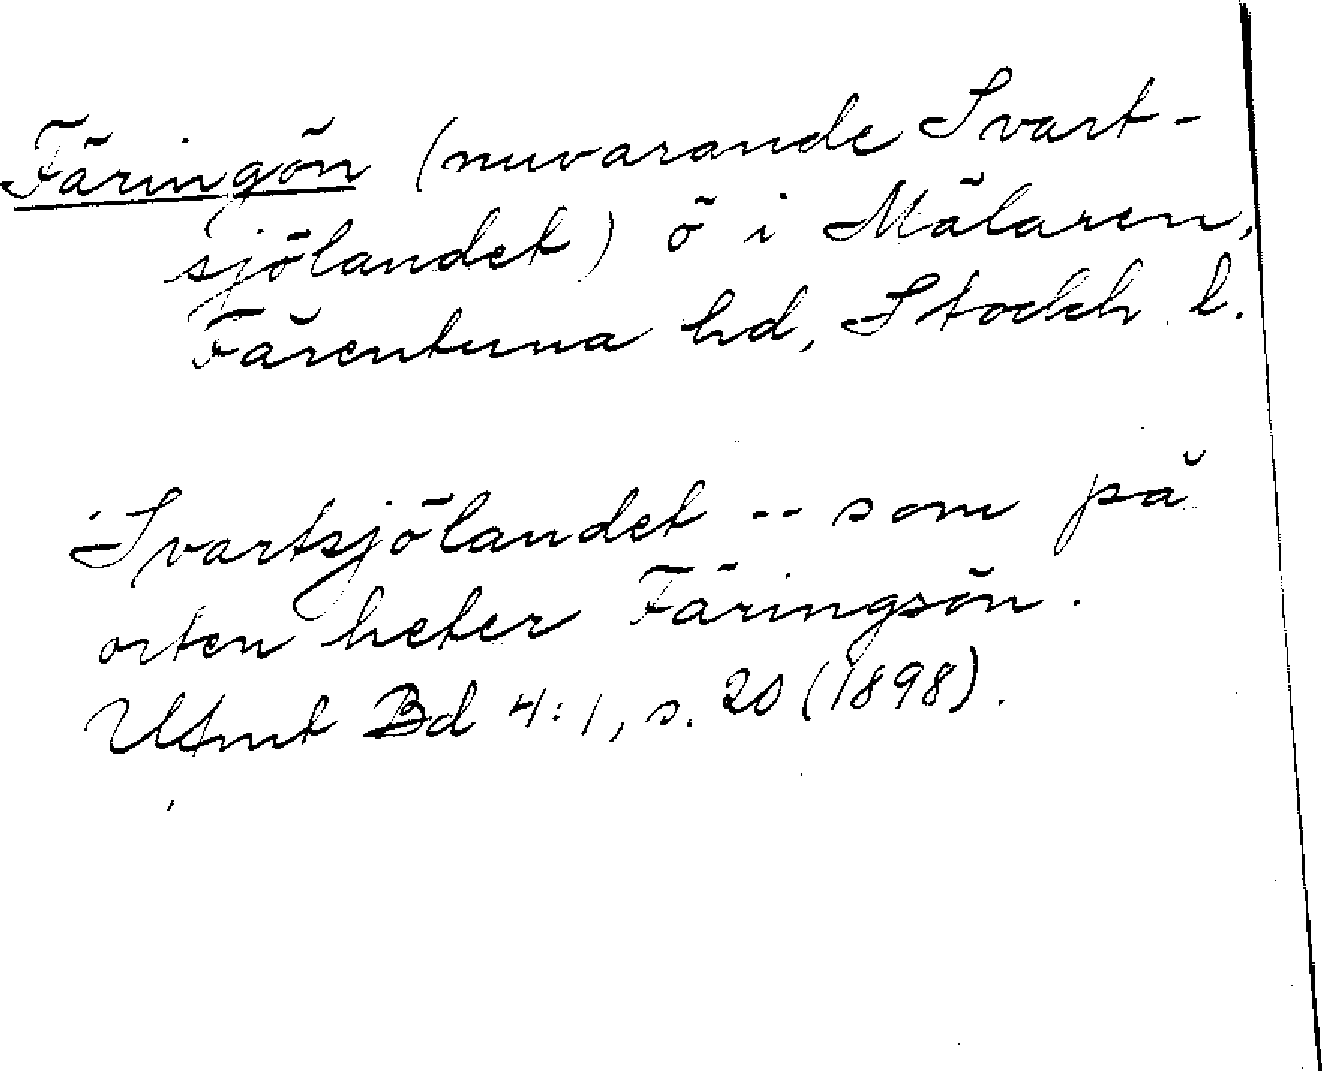 Färingön (nuvarande Svart-
sjölandet) ö i Mälaren,
Färentuna hd, Stockh l.
Svartsjölandet -- som på
orten heter Färingsön.
Utmt Bd 4:1, s. 20 (1898).